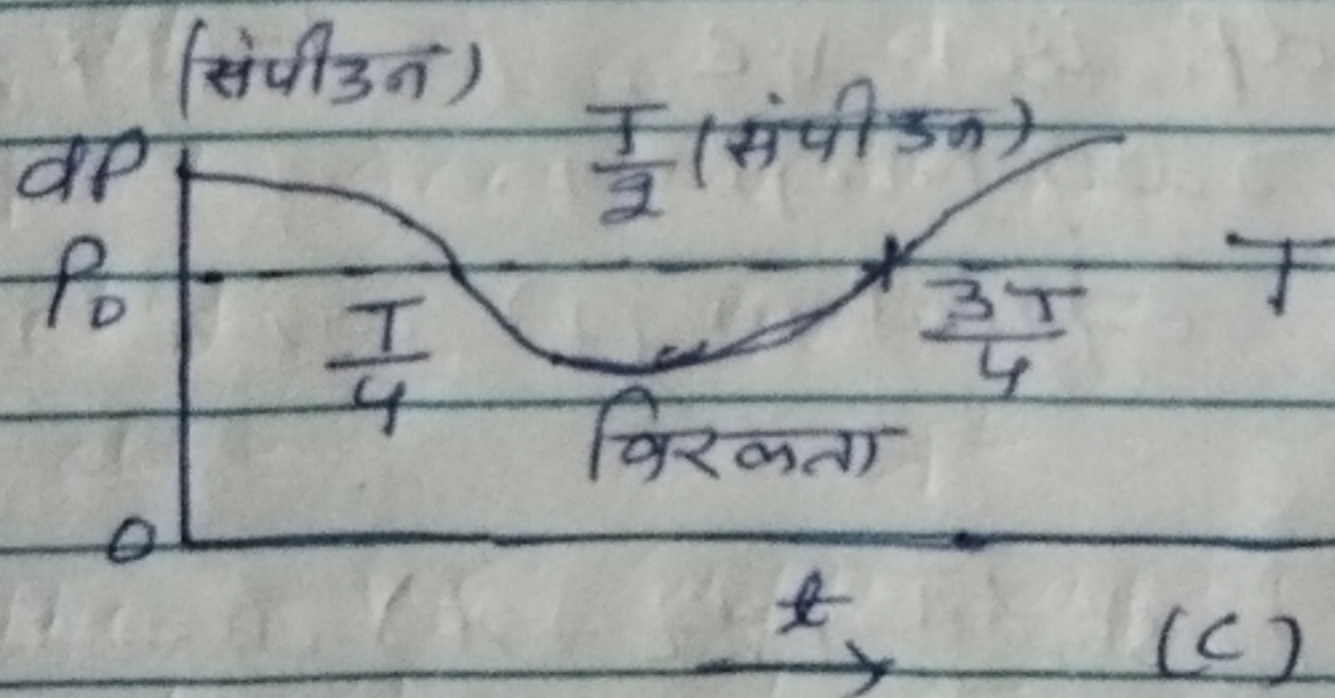 (संपीडन)
dP
T/2 (संपीडन)
P₀
T/4
3T/4
T
विरलता
0
t
(C)